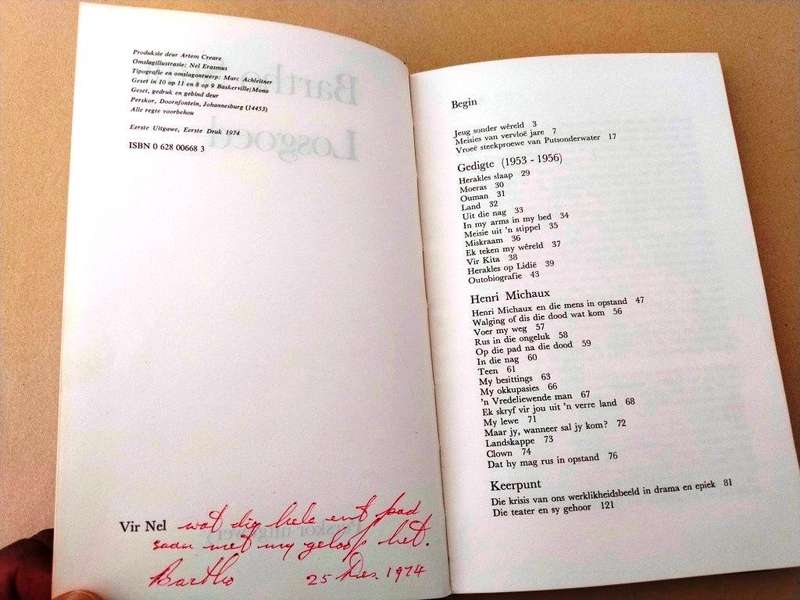 Produksie deur Artem Creare
Omslagillustrasie: Nel Erasmus
Tipografie en omslagontwerp: Marc Achleitner
Geset in 10 op 11 en 8 op 9 Baskerville/Mono
Geset, gedruk en gebind deur
Perskor, Doornfontein, Johannesburg (14453)
Alle regte voorbehou
Eerste Uitgawe, Eerste Druk 1974
ISBN 0 628 00668 3
Vir Nel wat die hele ent pad
saam met my geloop het.
Bartho 25 Des. 1974
Begin
Jeug sonder wêreld 3
Meisies van vervloë jare 7
Vroeë steekproewe van Putsonderwater 17
Gedigte (1953 - 1956)
Herakles slaap 29
Moeras 30
Ouman 31
Land 32
Uit die nag 33
In my arms in my bed 34
Meisie uit 'n stippel 35
Miskraam 36
Ek teken my wêreld 37
Vir Kita 38
Herakles op Lidië 39
Outobiografie 43
Henri Michaux
Henri Michaux en die mens in opstand 47
Walging of dis die dood wat kom 56
Voer my weg 57
Rus in die ongeluk 58
Op die pad na die dood 59
In die nag 60
Teen 61
My besittings 63
My okkupasies 66
'n Vredeliewende man 67
Ek skryf vir jou uit 'n verre land 68
My lewe 71
Maar jy, wanneer sal jy kom? 72
Landskappe 73
Clown 74
Dat hy mag rus in opstand 76
Keerpunt
Die krisis van ons werklikheidsbeeld in drama en epiek 81
Die teater en sy gehoor 121